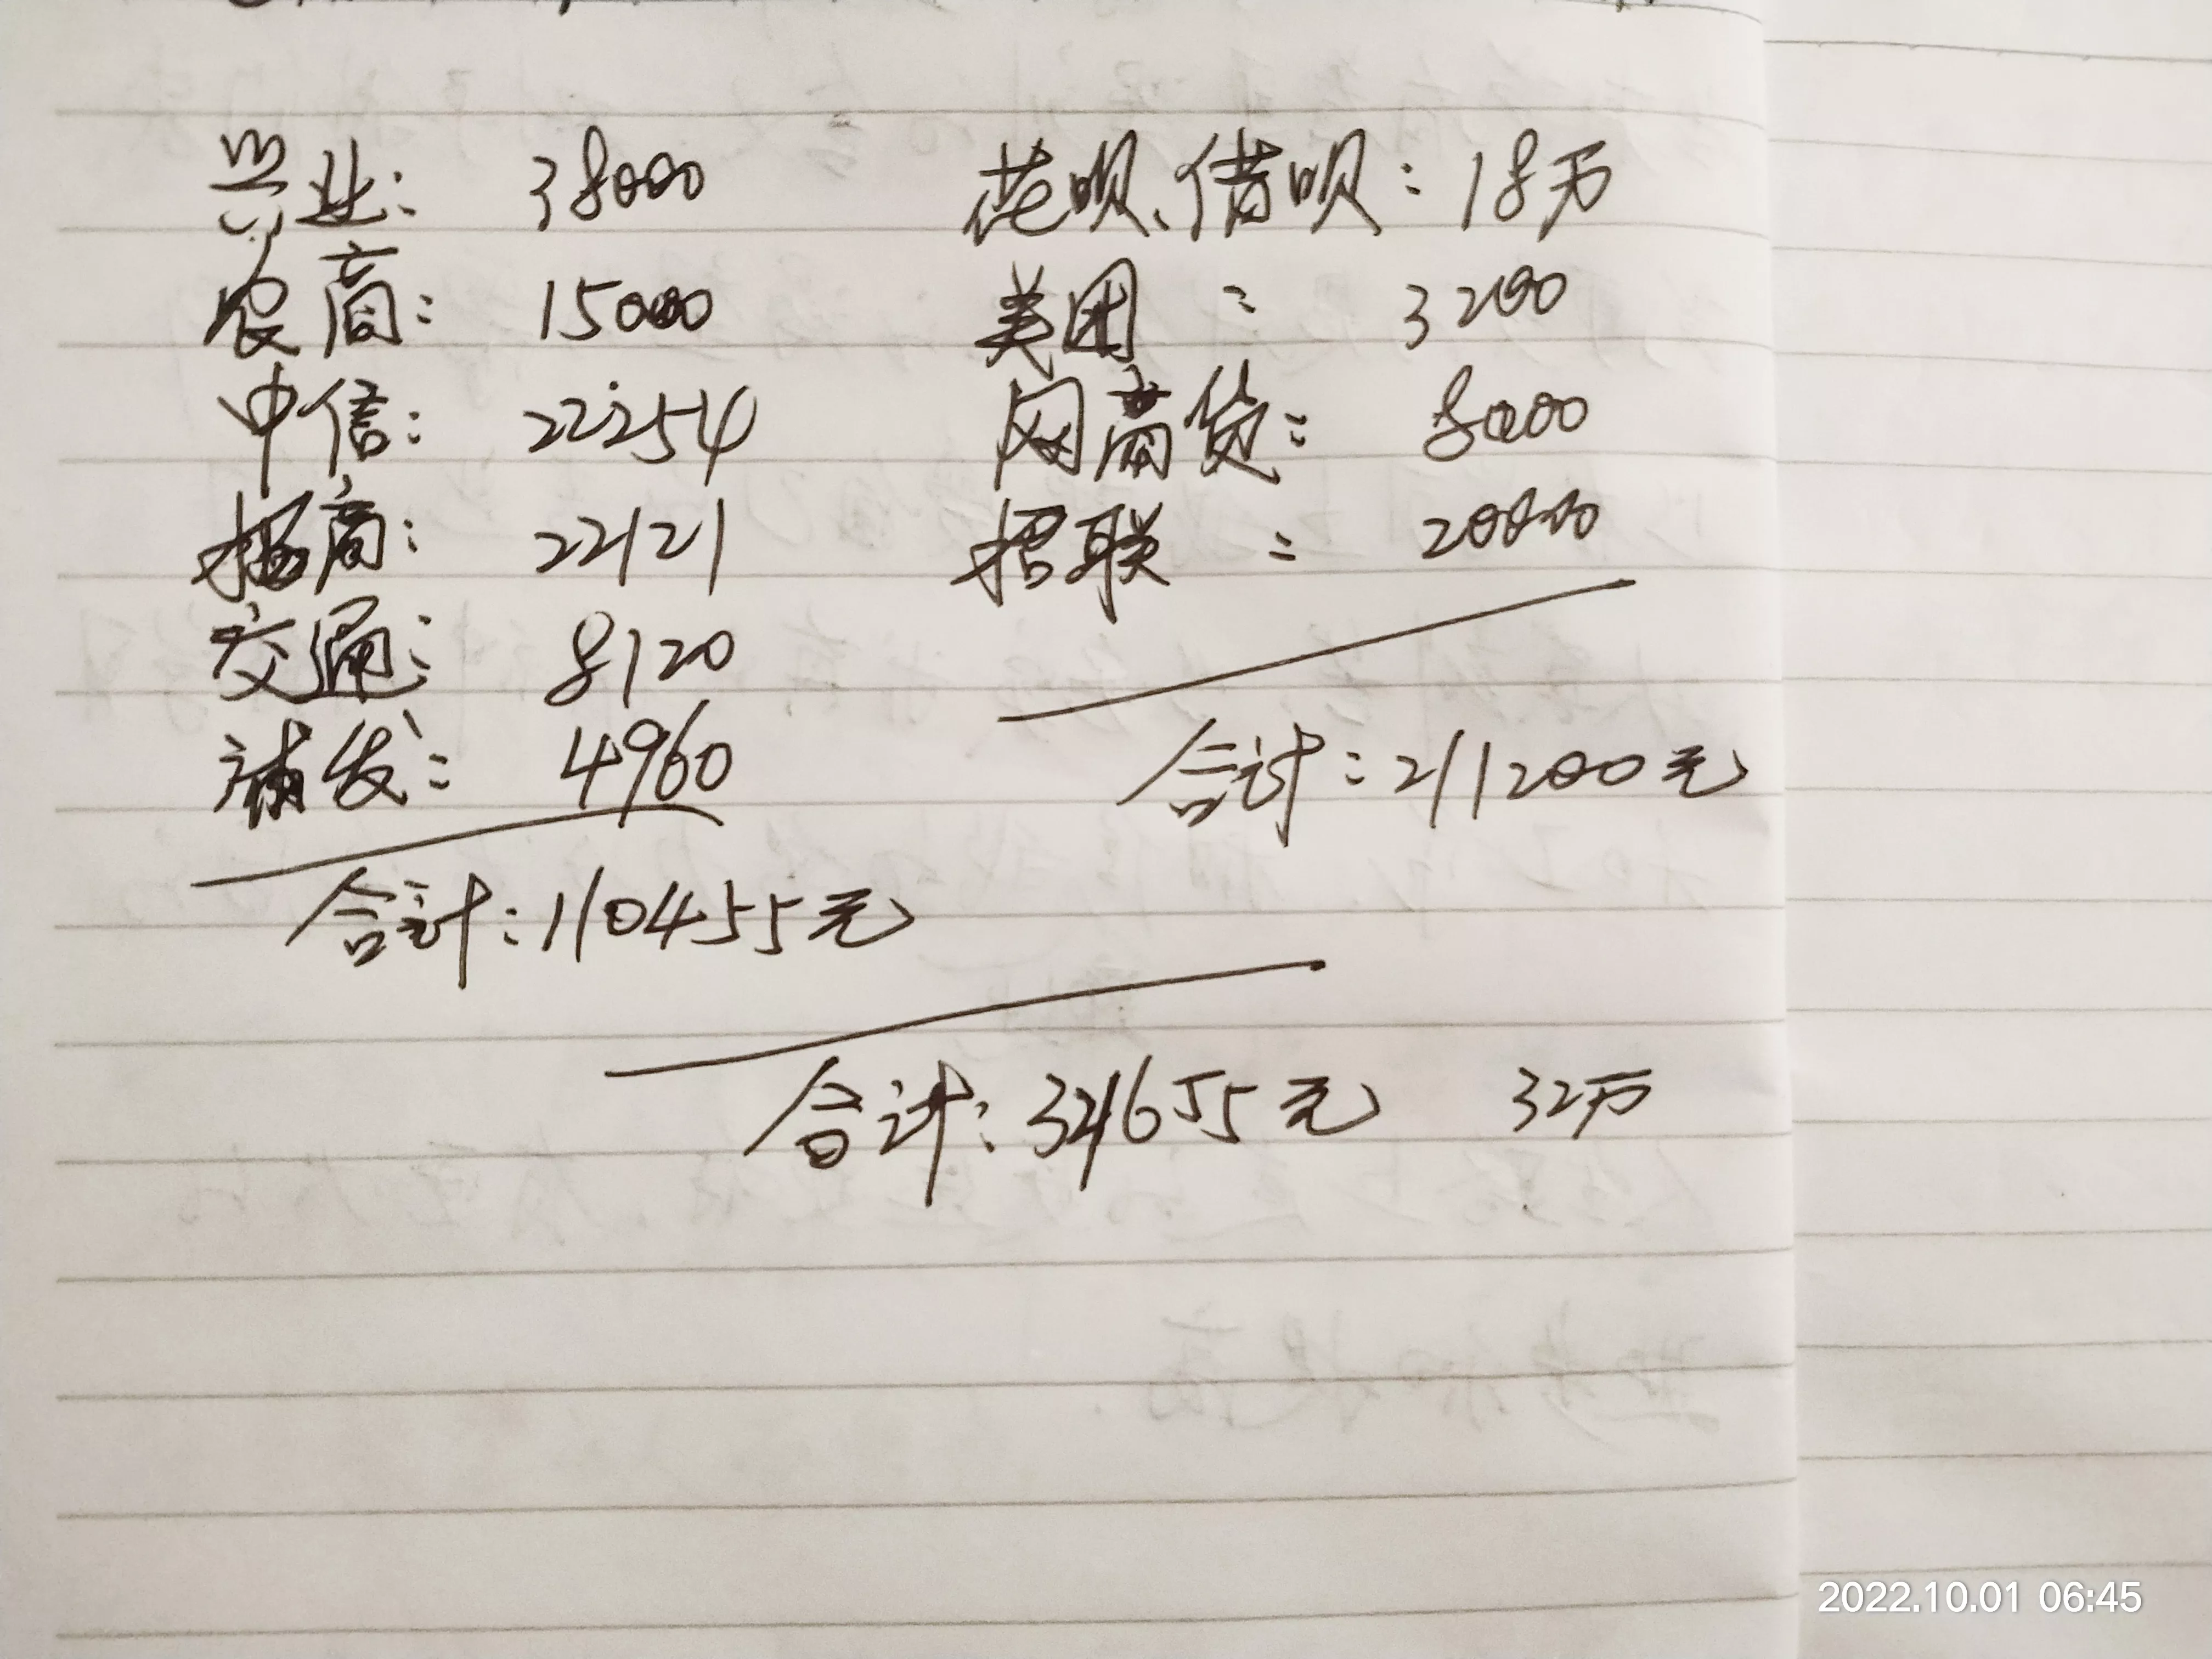 兴业: 38000
农商: 15000
中信: 22254
招商: 22121
交通: 8120
浦发: 4960
合计: 110455元
花呗、借呗: 18万
美团: 3200
网商贷: 8000
招联: 20000
合计: 211200元
合计: 321655元 32万
2022.10.01 06:45